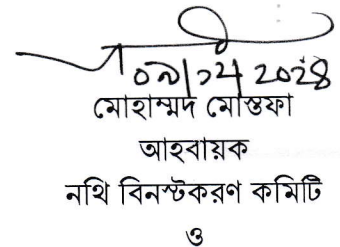 ০৯/১২/২০২৪
মোহাম্মদ মোস্তফা
আহবায়ক
নথি বিনস্টকরণ কমিটি
ও